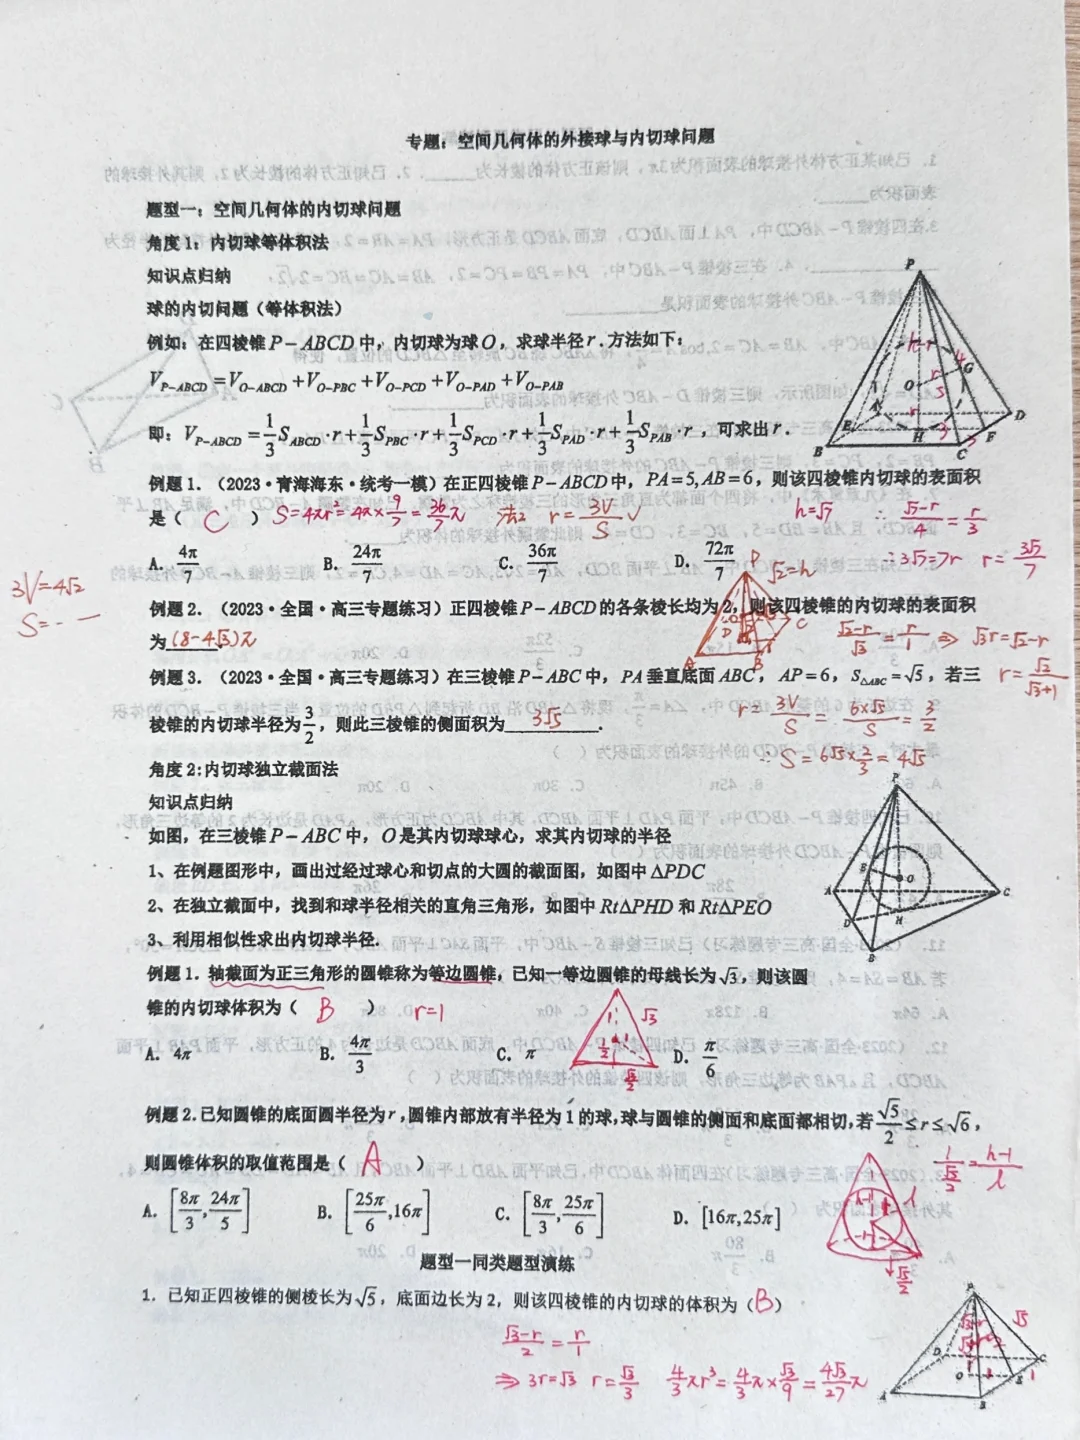 专题：空间几何体的外接球与内切球问题
题型一：空间几何体的内切球问题
角度1：内切球等体积法
知识点归纳
球的内切问题（等体积法）
例如：在四棱锥 P－ABCD 中，内切球为球 O，求球半径 r．方法如下：
V_{P－ABCD} = V_{O－ABCD} + V_{O－PBC} + V_{O－PCD} + V_{O－PAD} + V_{O－PAB}
即：V_{P－ABCD} = 1/3 S_{ABCD}·r + 1/3 S_{PBC}·r + 1/3 S_{PCD}·r + 1/3 S_{PAD}·r + 1/3 S_{PAB}·r，可求出 r．
例题1.（2023·青海海东·统考一模）在正四棱锥 P－ABCD 中，PA=5, AB=6，则该四棱锥内切球的表面积
是（ C ） S=4πr²=4π×9/7=36/7π 法2 r=3V/S √ h=√7 ∴ (√7-r)/4=r/3
A. 4π/7 B. 24π/7 C. 36π/7 D. 72π/7 ∴3√7=7r r=3√7/7
√2=h
3V=4√2
例题2.（2023·全国·高三专题练习）正四棱锥 P－ABCD 的各条棱长均为2，则该四棱锥的内切球的表面积
S=--
为 (8-4√3)π (√2-r)/√3=r/1 ⇒ √3r=√2-r
例题3.（2023·全国·高三专题练习）在三棱锥 P－ABC 中，PA 垂直底面 ABC，AP=6，S_{△ABC}=√5，若三 r=√2/(√3+1)
棱锥的内切球半径为 3/2，则此三棱锥的侧面积为 3√5 . r=3V/S=6×√5/S=3/2
∴ S=6√5×2/3=4√5
角度2:内切球独立截面法
知识点归纳
如图，在三棱锥 P－ABC 中，O 是其内切球球心，求其内切球的半径
1、在例题图形中，画出过经过球心和切点的大圆的截面图，如图中 △PDC
2、在独立截面中，找到和球半径相关的直角三角形，如图中 Rt△PHD 和 Rt△PEO
3、利用相似性求出内切球半径.
例题1. 轴截面为正三角形的圆锥称为等边圆锥，已知一等边圆锥的母线长为 √3，则该圆
锥的内切球体积为（ B ） r=1 √3
A. 4π B. 4π/3 C. π D. π/6
例题2.已知圆锥的底面圆半径为 r，圆锥内部放有半径为1的球,球与圆锥的侧面和底面都相切,若 √5/2 ≤r≤ √6，
则圆锥体积的取值范围是（ A ）
A. [8π/3, 24π/5] B. [25π/6, 16π] C. [8π/3, 25π/6] D. [16π,25π]
题型一同类题型演练
1. 已知正四棱锥的侧棱长为 √5，底面边长为2，则该四棱锥的内切球的体积为（B）
(√3-r)/2=r/1
⇒ 3r=√3 r=√3/3 4/3πr³=4/3π×√3/9=4√3/27π